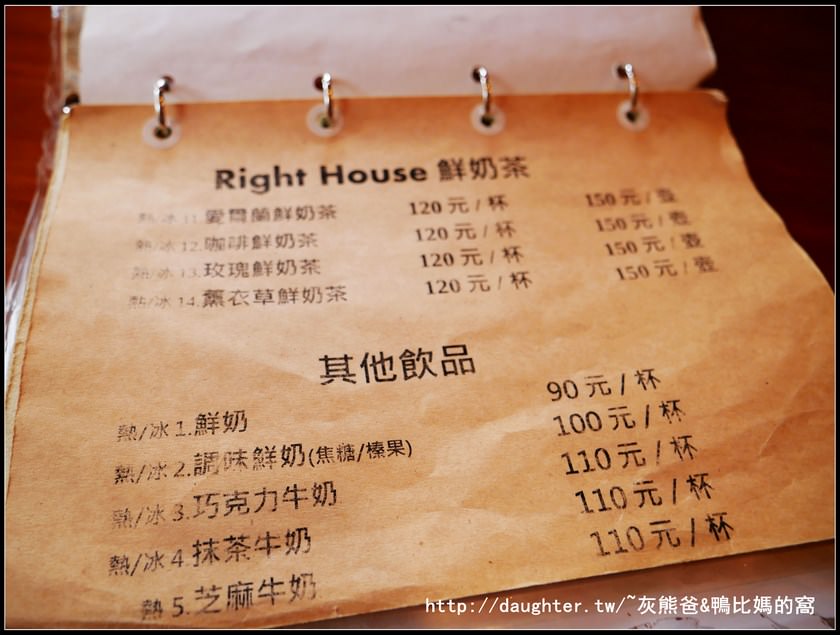 Right House 鮮奶茶
熱/冰 11.愛爾蘭鮮奶茶 120 元 / 杯 150 元 / 壺
熱/冰 12.咖啡鮮奶茶 120 元 / 杯 150 元 / 壺
熱/冰 13.玫瑰鮮奶茶 120 元 / 杯 150 元 / 壺
熱/冰 14.薰衣草鮮奶茶 120 元 / 杯 150 元 / 壺
其他飲品
熱/冰 1.鮮奶 90 元 / 杯
熱/冰 2.調味鮮奶(焦糖/榛果) 100 元 / 杯
熱/冰 3.巧克力牛奶 110 元 / 杯
熱/冰 4.抹茶牛奶 110 元 / 杯
熱 5.芝麻牛奶 110 元 / 杯
http://daughter.tw/~灰熊爸&鴨比媽的窩